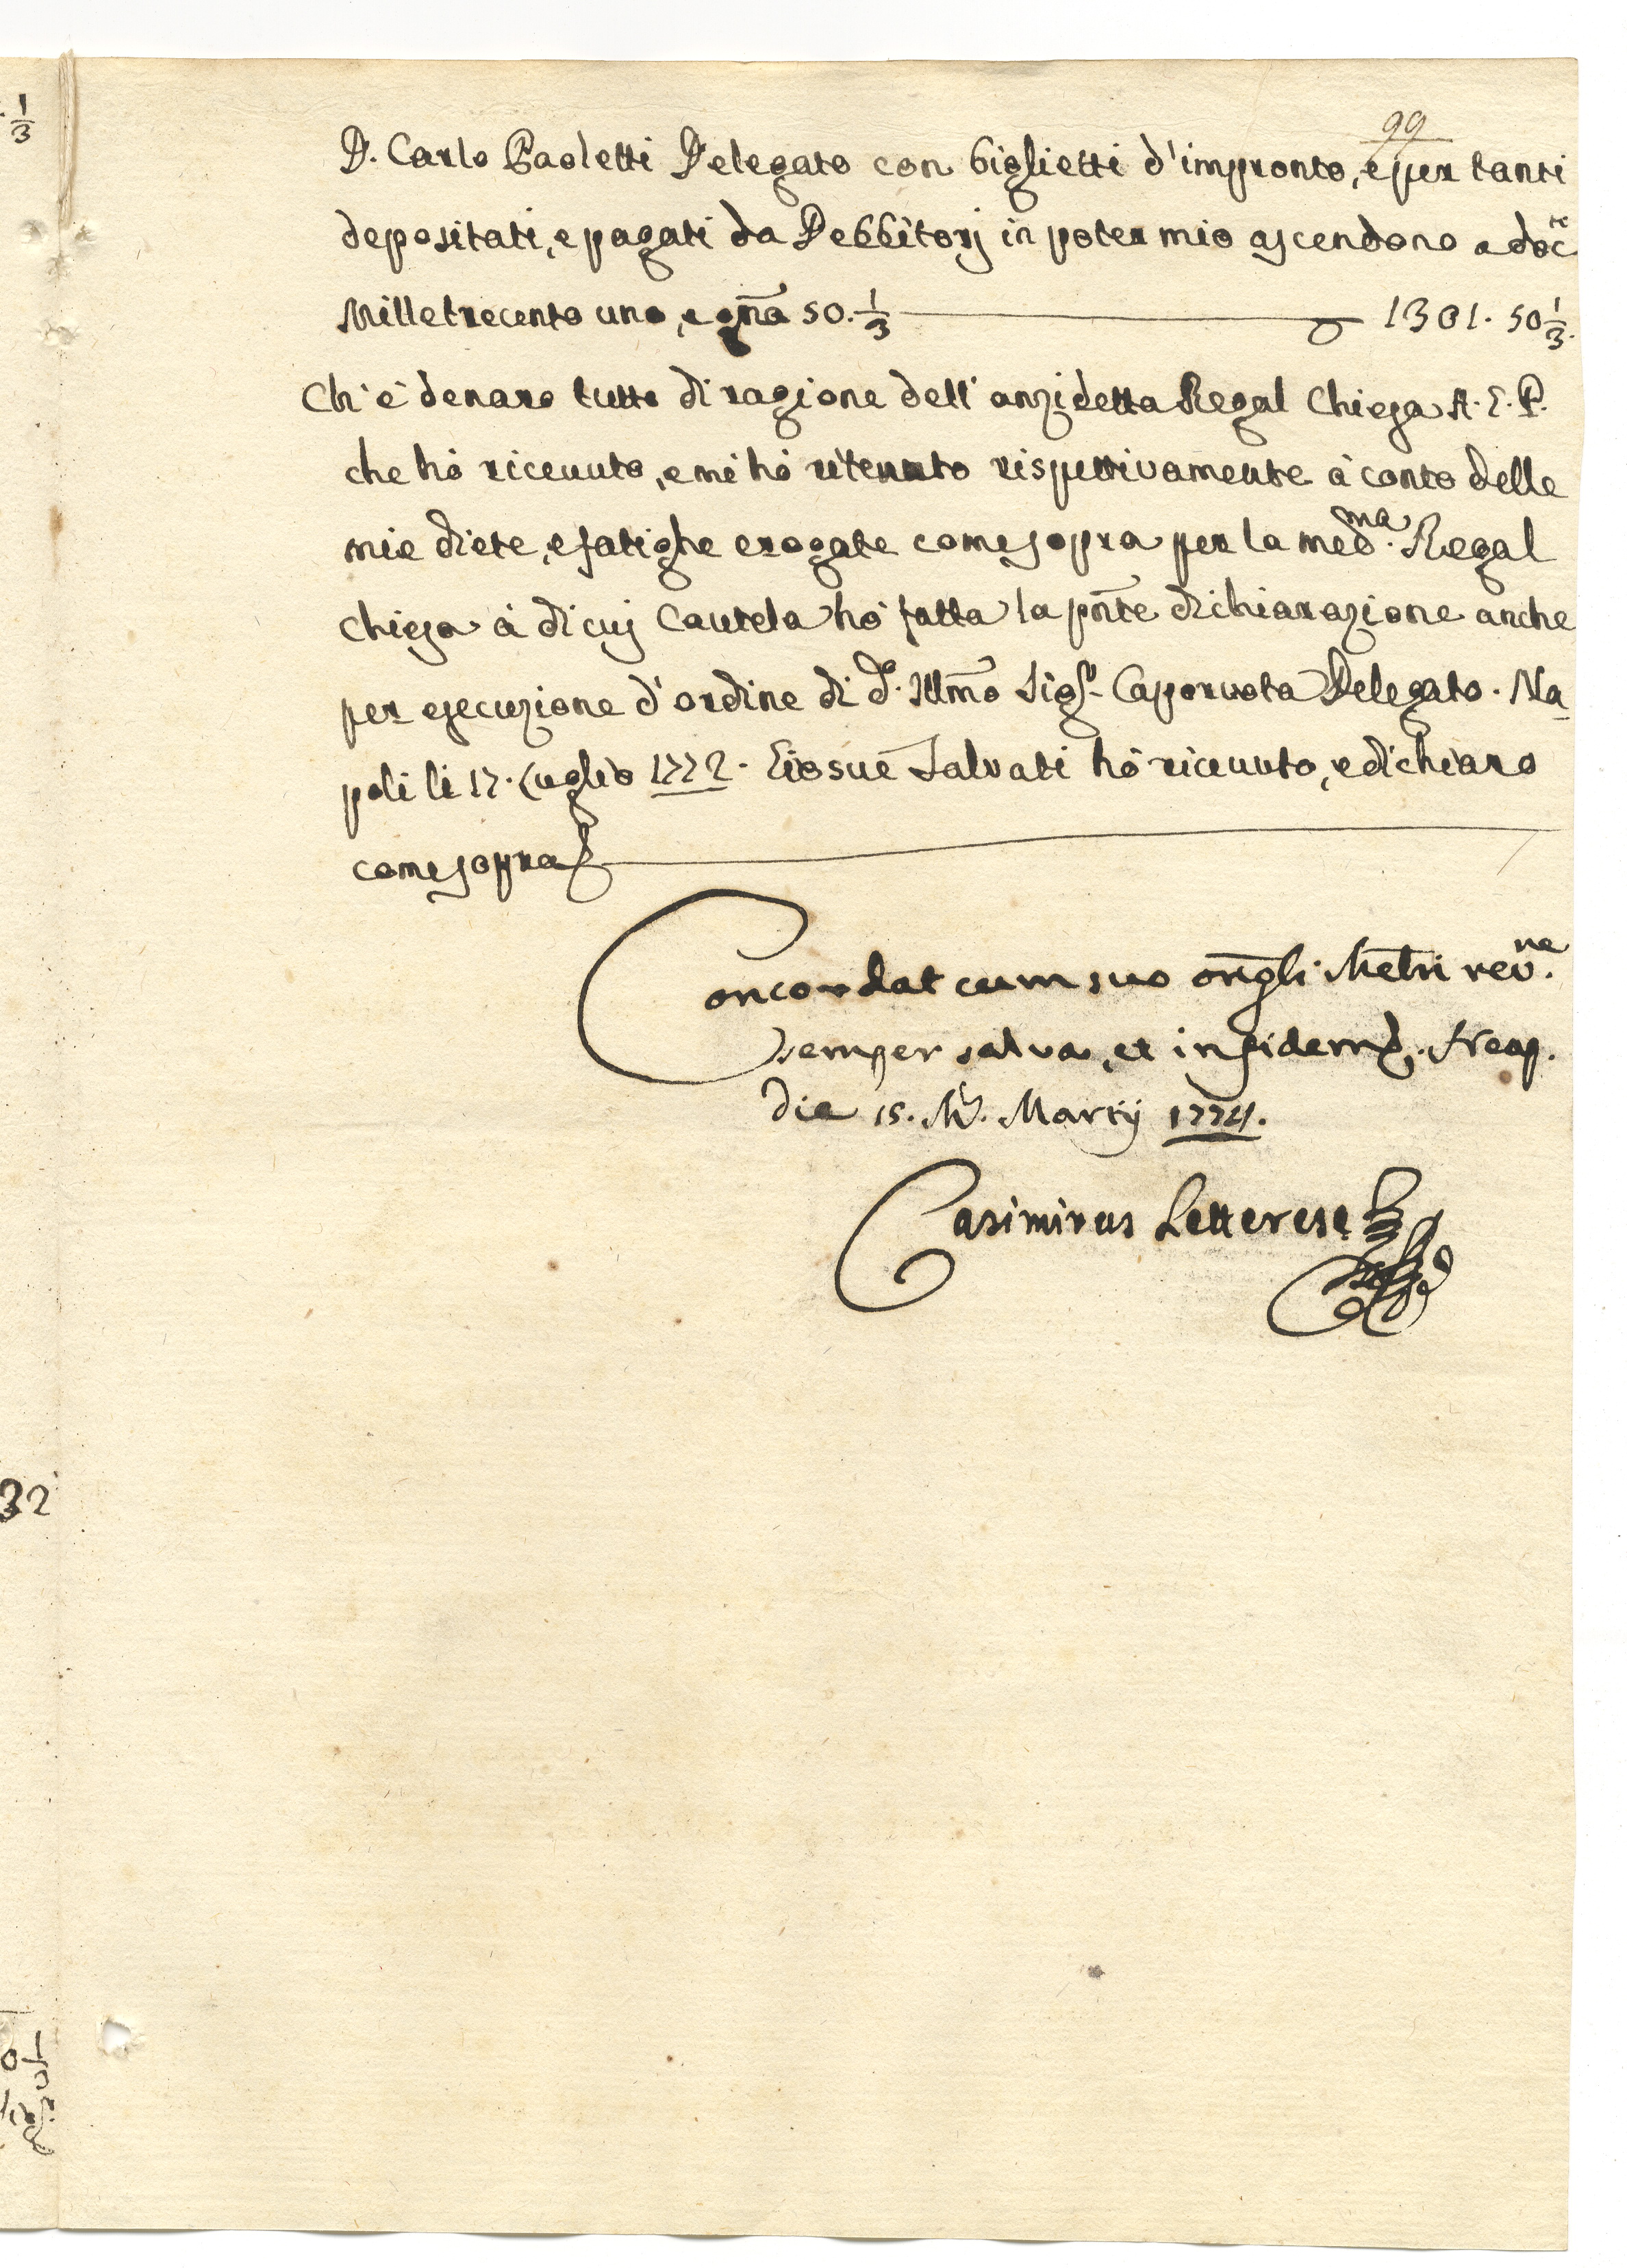 99
D. Carlo Paoletti Delegato con biglietti d'impronto, e per tanti
depositati, e pagati da Debbitorj in poter mio ascendono a doc.ti
Milletrecento uno, e gna 50. 1/3 — 1301. 50 1/3.
Ch'è denaro tutto di ragione dell'anzidetta Regal Chiesa A. G. P.
che hò riceuuto, e mi hò ritenuto rispettivamente à conto delle
mie diete, e fatighe erogate come sopra per la med.ma Regal
Chiesa à di cuj Cautela hò fatta la pnte dichiarazione anche
per esecuzione d'ordine di d.o Illmo Sig.r Caporuota Delegato. Na-
poli li 17. Luglio 1772. Giosuè Salvati hò riceuuto, e dichiaro
come sopra
Concordat cum suo orngli Meliri rev.ne
semper salva, et in fidem. Neap.
die 15. M. Martij 1774.
Casimirus Letterese
1/3
32